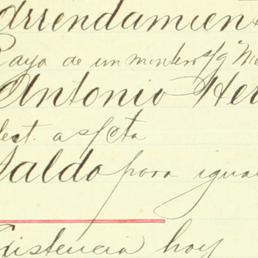 Arrendamien
Pago de un montero s/g "M
Antonio He
est. a s/cta
Saldo para igua
Existencia hoy